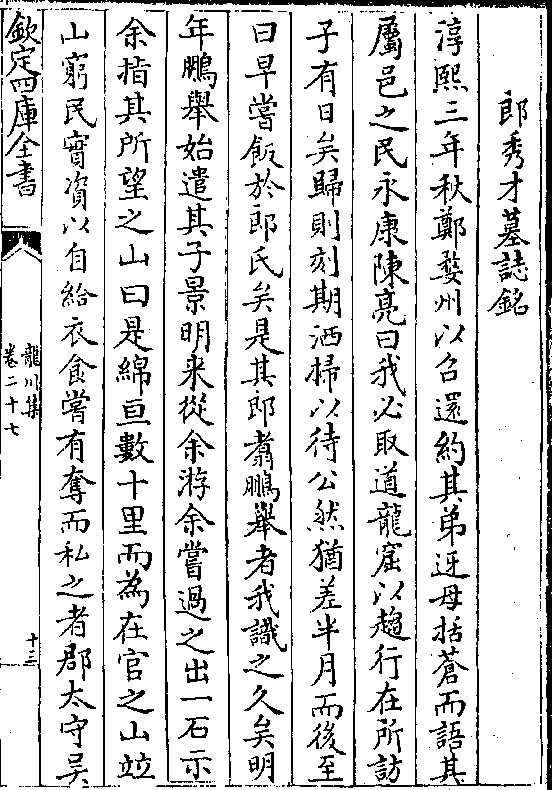 郎秀才墓誌銘
淳熙三年秋鄭婺州以召還約其弟迓母括蒼而語其
屬邑之民永康陳亮曰我必取道龍窟以趨行在所訪
子有日矣歸則刻期洒掃以待公然猶差半月而後至
曰早嘗飯於郎氏矣是其郎翥鵬舉者我識之久矣明
年鵬舉始遣其子景明来從余游余嘗過之出一石示
余指其所望之山曰是綿亘數十里而為在官之山竝
山窮民實資以自給衣食嘗有奪而私之者郡太守吳
欽定四庫全書
龍川集
卷二十七
十三